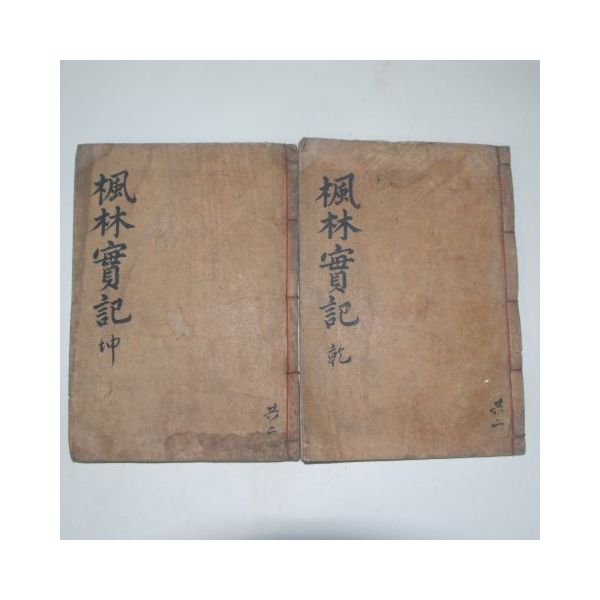 楓林實記 乾
共二
楓林實記 坤
共二